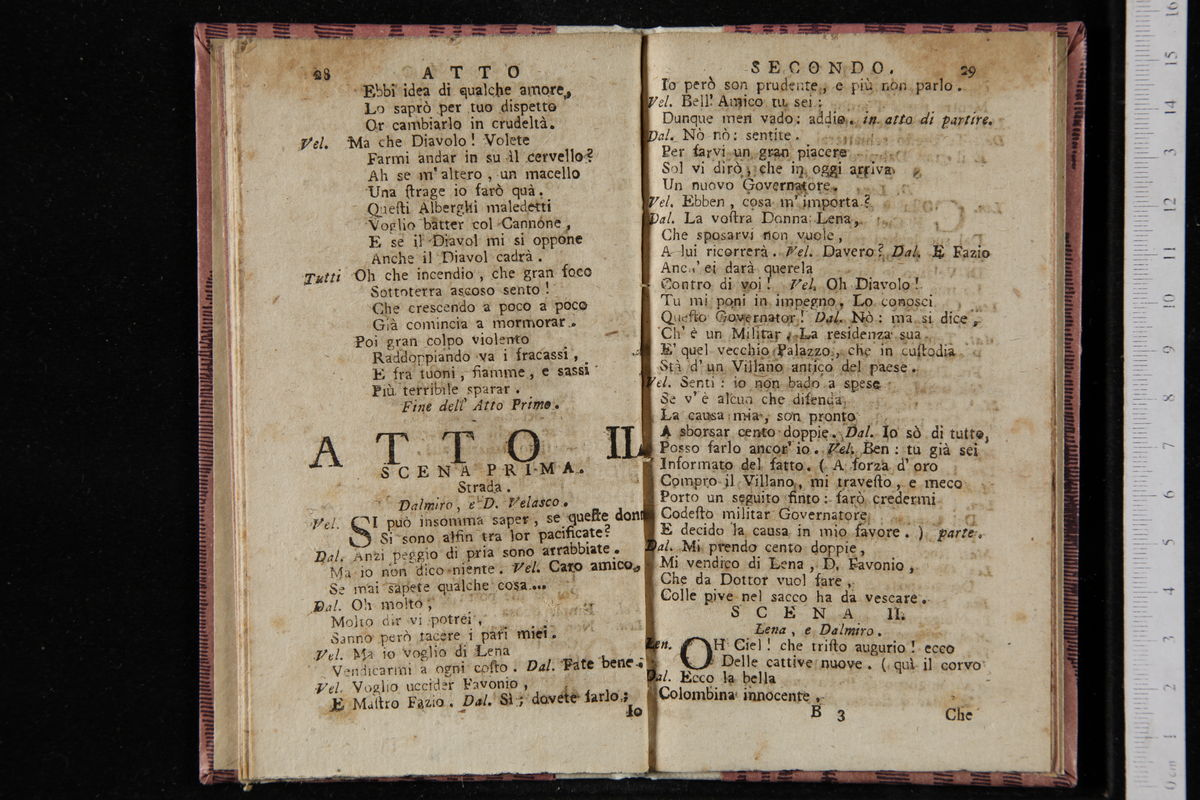 28 ATTO
Ebbi idea di qualche amore,
Lo saprò per tuo dispetto
Or cambiarlo in crudeltà.
Vel. Ma che Diavolo! Volete
Farmi andar in su il cervello?
Ah se m'altero, un macello
Una ſtrage io farò quà.
Queſti Alberghi maledetti
Voglio batter col Cannone,
E se il Diavol mi si oppone
Anche il Diavol cadrà.
Tutti Oh che incendio, che gran foco
Sottoterra ascoso sento!
Che crescendo a poco a poco
Già comincia a mormorar.
Poi gran colpo violento
Raddoppiando va i fracassi,
E fra tuoni, fiamme, e sassi
Più terribile sparar.
Fine dell' Atto Primo.
ATTO II.
SCENA PRIMA.
Strada.
Dalmiro, e D. Velasco.
Vel. SI può insomma saper, se queſte donn
Si sono alfin tra lor pacificate?
Dal. Anzi peggio di pria sono arrabbiate.
Ma io non dico niente. Vel. Caro amico,
Se mai sapete qualche cosa...
Dal. Oh molto,
Molto dir vi potrei,
Sanno però tacere i pari miei.
Vel. Ma io voglio di Lena
Vendicarmi a ogni coſto. Dal. Fate bene.
Vel. Voglio uccider Favonio,
E Maſtro Fazio. Dal. Sì; dovete farlo;
Io
SECONDO. 29
Io però son prudente, e più non parlo.
Vel. Bell' Amico tu sei:
Dunque men vado: addio. in atto di partire.
Dal. Nò nò: sentite.
Per farvi un gran piacere
Sol vi dirò, che in oggi arriva
Un nuovo Governatore.
Vel. Ebben, cosa m' importa?
Dal. La voſtra Donna Lena,
Che sposarvi non vuole,
A lui ricorrerà. Vel. Davero? Dal. E Fazio
Anch' ei darà querela
Contro di voi! Vel. Oh Diavolo!
Tu mi poni in impegno. Lo conosci
Queſto Governator! Dal. Nò: ma si dice,
Ch' è un Militar. La residenza sua
E' quel vecchio Palazzo, che in cuſtodia
Stà d' un Villano antico del paese.
Vel. Senti: io non bado a spese
Se v' è alcun che difenda
La causa mia, son pronto
A sborsar cento doppie. Dal. Io sò di tutto,
Posso farlo ancor' io. Vel. Ben: tu già sei
Informato del fatto. (A forza d' oro
Compro il Villano, mi traveſto, e meco
Porto un seguito finto: farò credermi
Codeſto militar Governatore
E decido la causa in mio favore.) parte.
Dal. Mi prendo cento doppie,
Mi vendico di Lena, D. Favonio,
Che da Dottor vuol fare,
Colle pive nel sacco ha da veſcare.
SCENA II.
Lena, e Dalmiro.
Len. OH Ciel! che triſto augurio! ecco
Delle cattive nuove. (quì il corvo
Dal. Ecco la bella
Colombina innocente,
B 3 Che